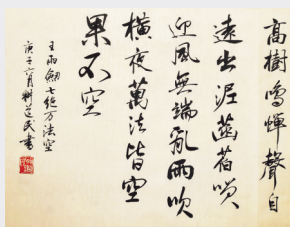 高樹鳴蟬聲自
遠出泥菡萏嘆
迎風無端亂雨吹
橫夜萬法皆空
果不空
王雨劔七绝万法空
庚子六月 民書